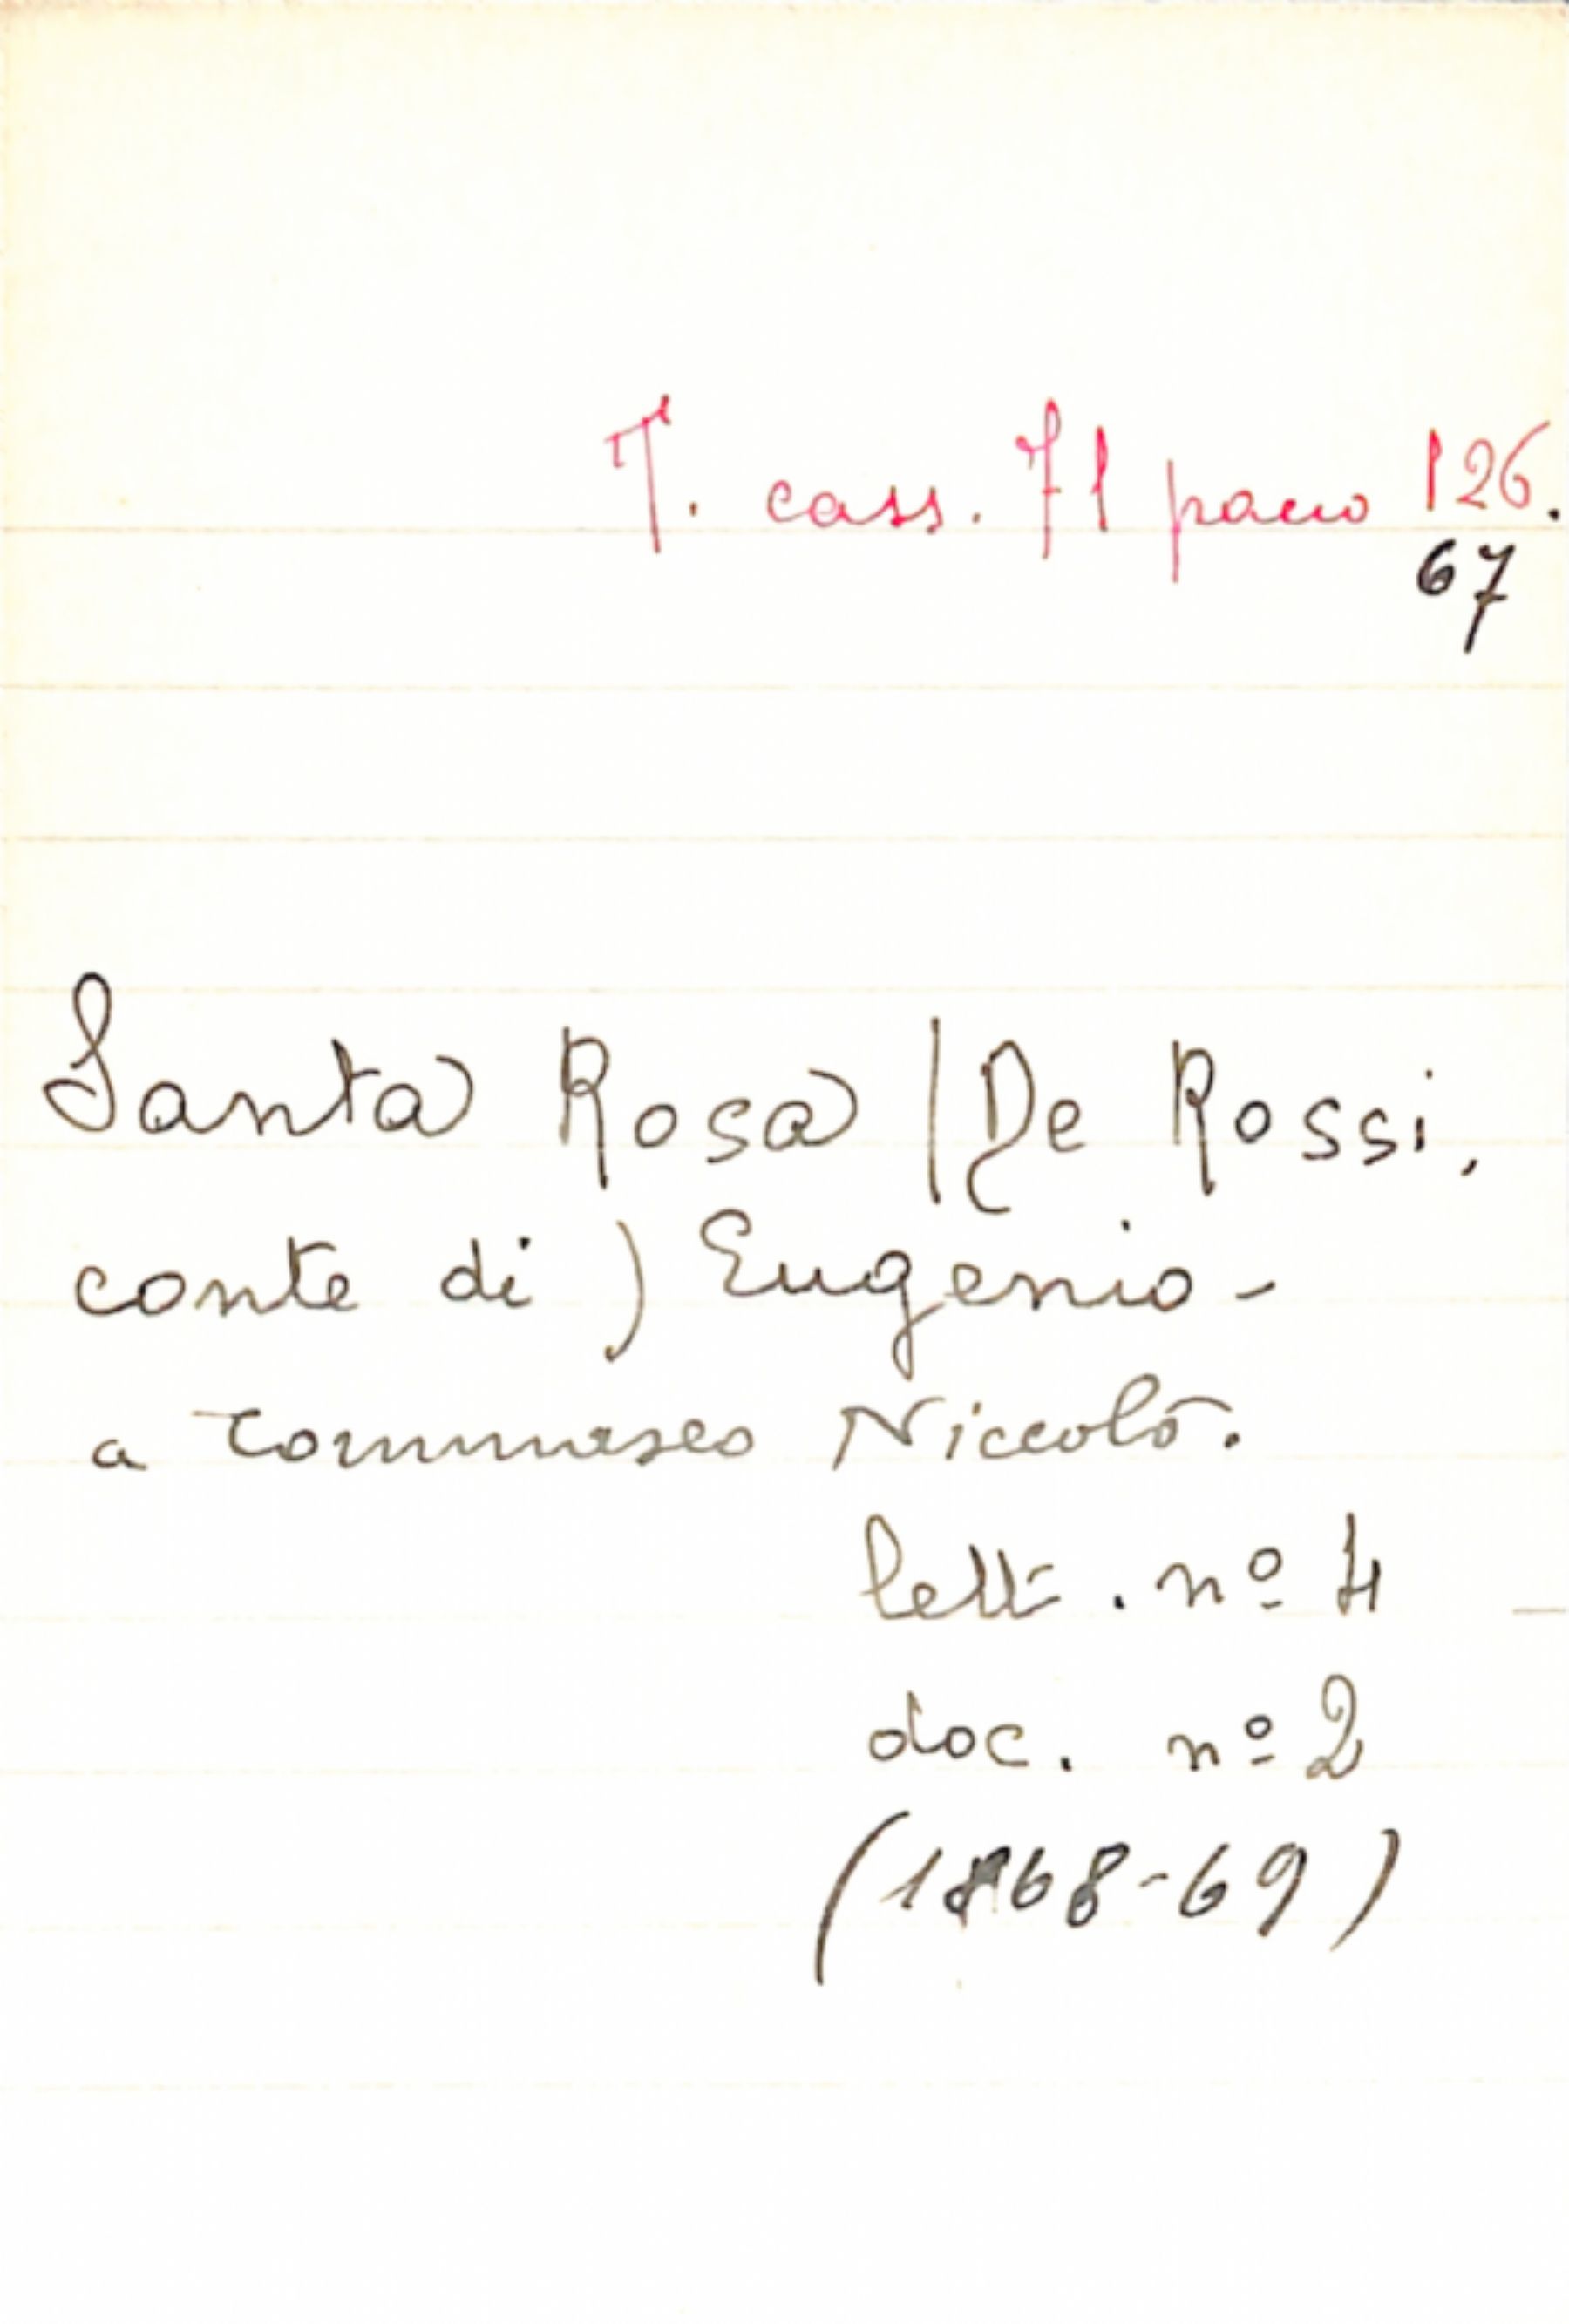 T. cass. 71 pacco 126.
67
Santa Rosa (De Rossi,
conte di) Eugenio -
a Tommaseo Niccolò.
lett. nº 4
doc. nº 2
(1868-69)